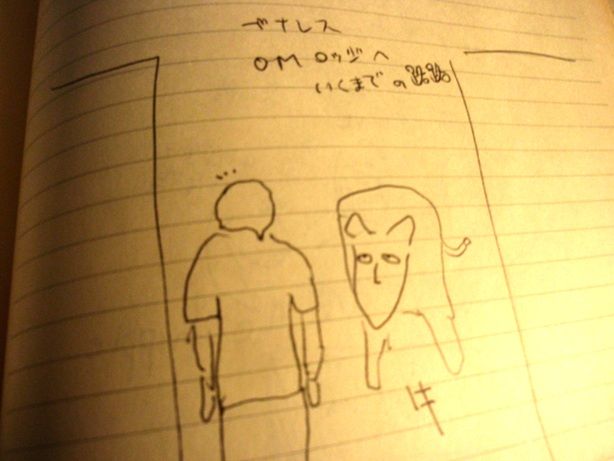 ベナレス
OM ロッジへ
いくまでの